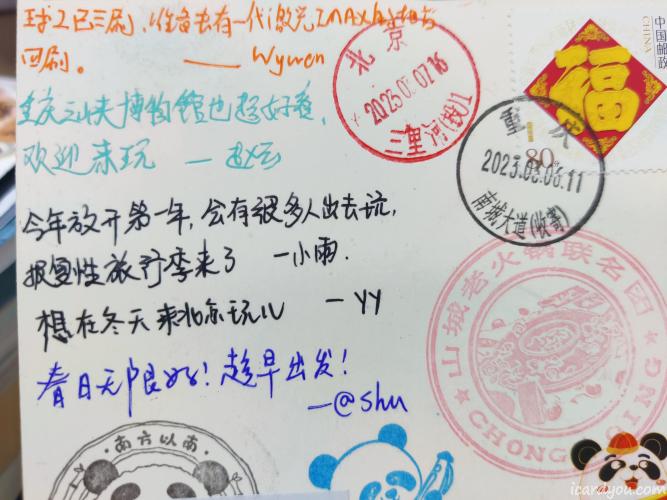 球2已三刷，准备去有一代激光IMAX的
四刷。 —— Wywen
重庆三峡博物馆也超好看，
欢迎来玩 —赵云
今年放开第一年，会有很多人出去玩，
报复性旅行季来了 —小雨.
想在冬天来北京玩儿 —YY
春日无限好！趁早出发！
—@shu
北京
2023.03.07.16
三里河(投)1
中国邮政
CHINA
福
80分
重庆
2023.03.06.11
南城大道(收寄)
山城老火锅联名团
CHONGQING
·南方以南·
icardyou.com